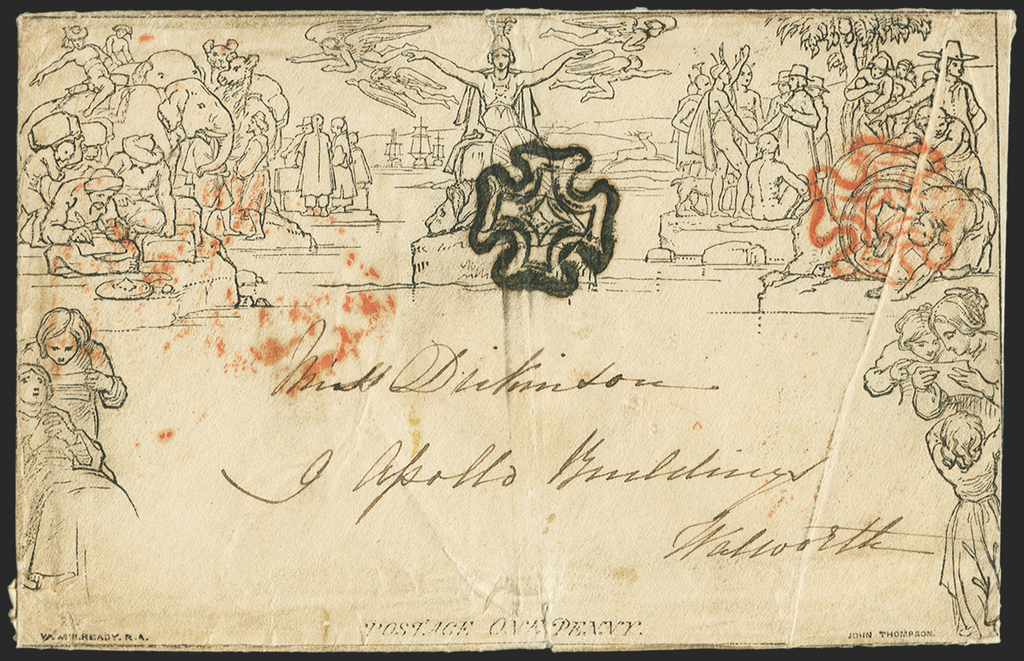 Miss Dickinson
9 Apollo Buildings
Walworth
POSTAGE ONE PENNY.
W. MULREADY. R.A.
JOHN THOMPSON.